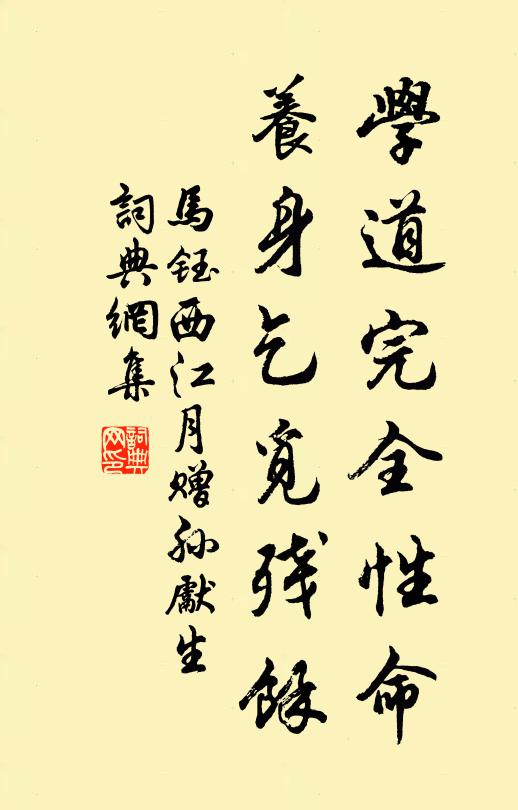 學道完全性命
養身乞覓残餘
馬鈺西江月赠孙獻生
詞典網集
詞典网印